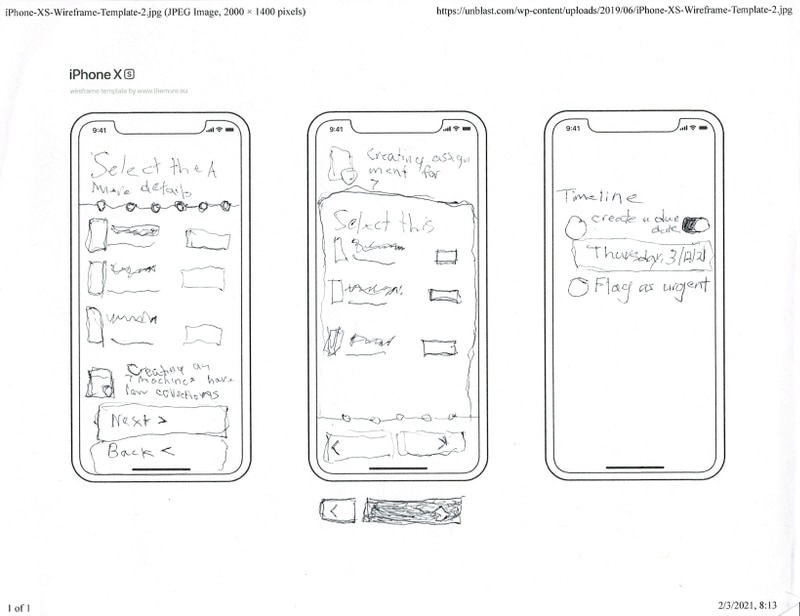 iPhone-XS-Wireframe-Template-2.jpg (JPEG Image, 2000 × 1400 pixels)
https://unblast.com/wp-content/uploads/2019/06/iPhone-XS-Wireframe-Template-2.jpg
iPhone X S
wireframe template by www.themore.eu
9:41
Select the A
More details
Creating an
7 machines have
low collections
Next >
Back <
9:41
Creating assign
ment for
7
Select this
<
>
<
9:41
Timeline
create a due
date
Thursday, 3/12/21
Flag as urgent
1 of 1
2/3/2021, 8:13